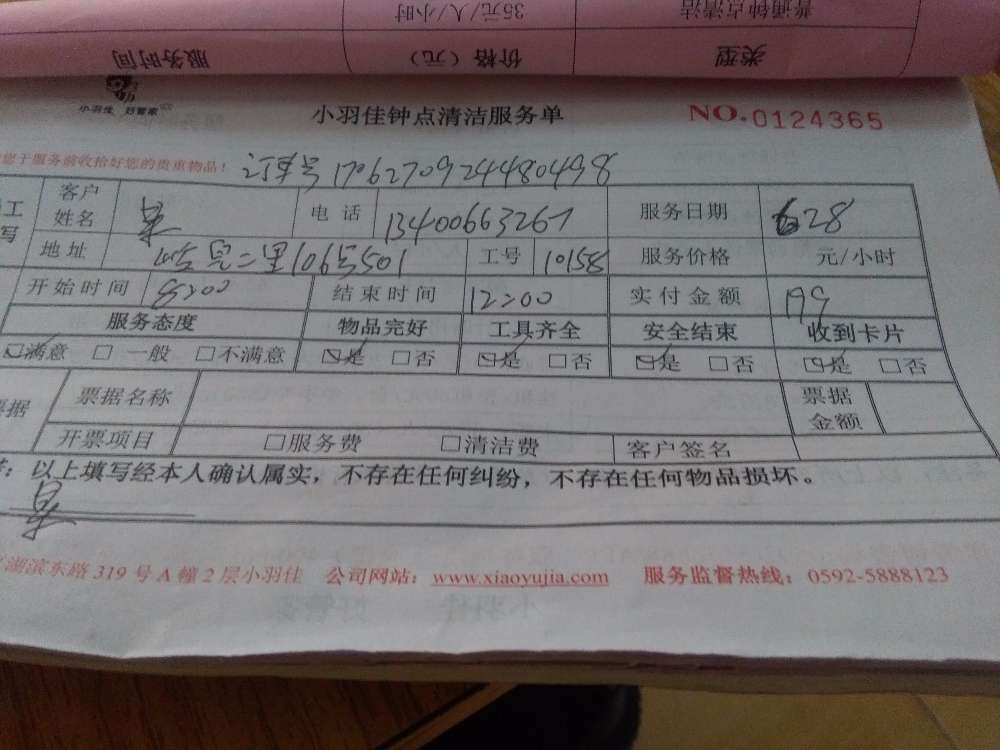 普通钟点清洁 35元/人/小时
类型 价格（元） 服务时间
小羽佳 好管家
小羽佳钟点清洁服务单 NO.0124365
您于服务前收拾好您的贵重物品！ 订单号 1706270924480498
客户姓名 电话 13400663267 服务日期 28
地址 二里106号501 工号 10158 服务价格 元/小时
开始时间 8:00 结束时间 12:00 实付金额 199
服务态度 物品完好 工具齐全 安全结束 收到卡片
☑满意 □一般 □不满意 ☑是 □否 ☑是 □否 ☑是 □否 ☑是 □否
票据名称 票据金额
开票项目 □服务费 □清洁费 客户签名
：以上填写经本人确认属实，不存在任何纠纷，不存在任何物品损坏。
湖滨东路319号A幢2层小羽佳 公司网站：www.xiaoyujia.com 服务监督热线：0592-5888123